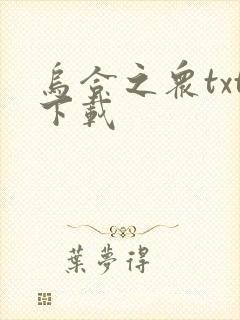 烏合之眾txt
下載
葉夢得